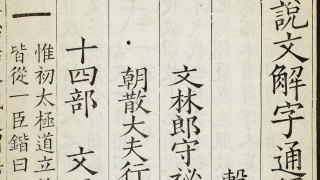 說文解字通
文林郎守祕
朝散大夫行
十四部 文
一
惟初太極道立
皆從一臣鍇曰